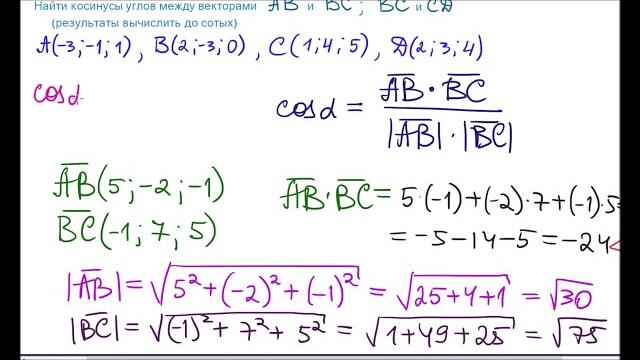 Найти косинусы углов между векторами AB и BC; BC и CD
(результаты вычислить до сотых)
A(-3;-1;1), B(2;-3;0), C(1;4;5), D(2;3;4)
cosα
cosα = AB·BC / |AB|·|BC|
AB(5;-2;-1)
BC(-1;7;5)
AB·BC = 5·(-1)+(-2)·7+(-1)·5=
= -5-14-5=-24<
|AB| = √5²+(-2)²+(-1)² = √25+4+1 = √30
|BC| = √(-1)²+7²+5² = √1+49+25 = √75